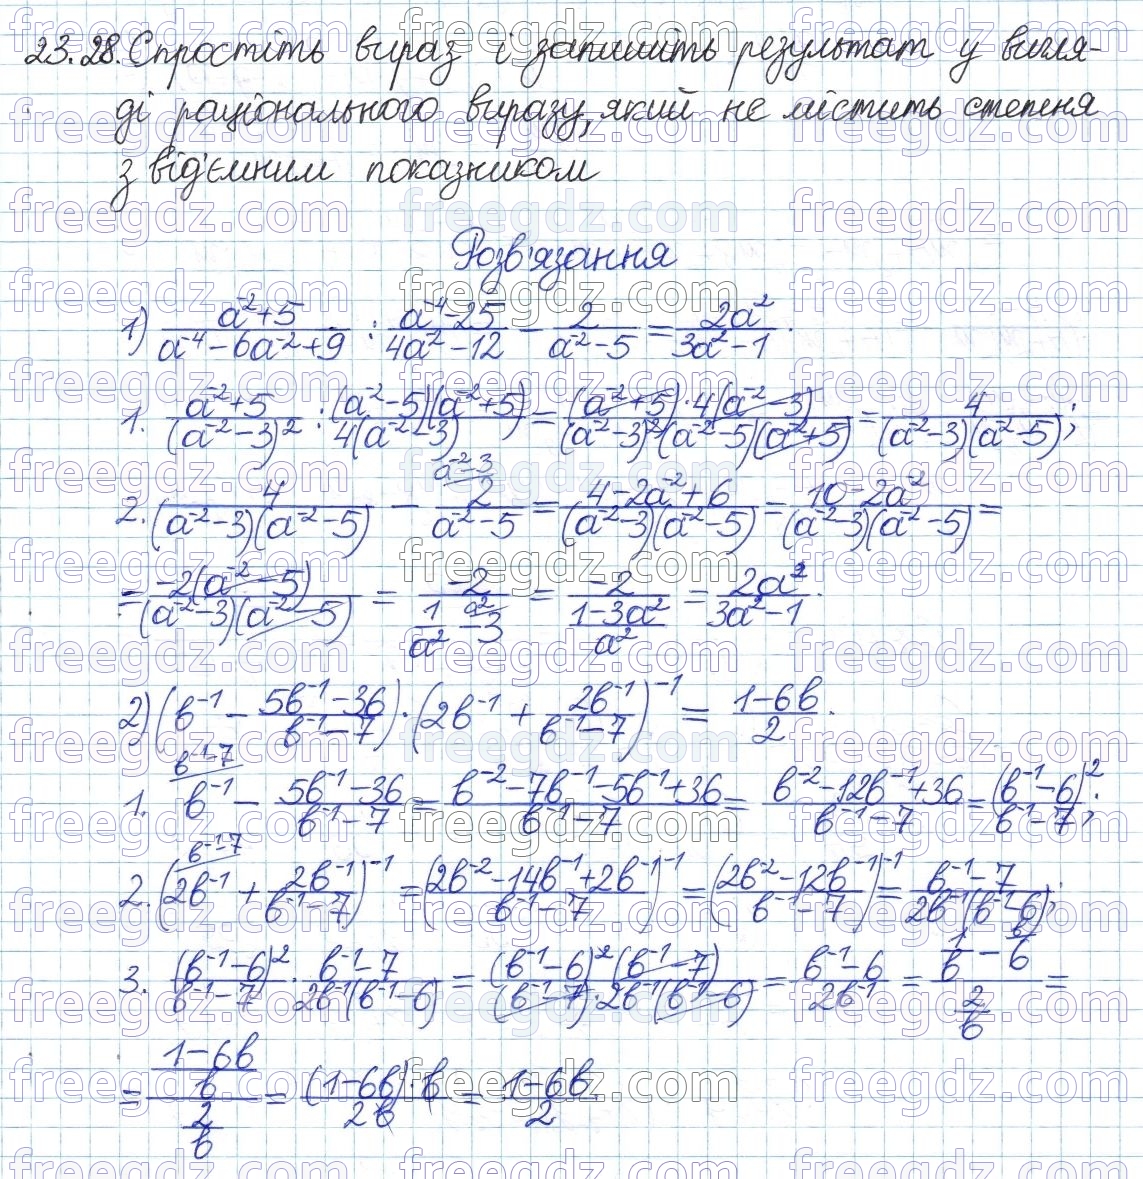 23.28. Спростіть вираз і запишіть результат у вигля-
ді раціонального виразу, який не містить степеня
з від'ємним показником
Розв'язання
1) (a⁻²+5)/(a⁻⁴-6a⁻²+9) : (a⁻⁴-25)/(4a⁻²-12) - 2/(a⁻²-5) = 2a²/(3a²-1).
1. (a⁻²+5)/(a⁻²-3)² : (a⁻²-5)(a⁻²+5)/4(a⁻²-3) = (a⁻²+5)·4(a⁻²-3)/(a⁻²-3)²(a⁻²-5)(a⁻²+5) = 4/(a⁻²-3)(a⁻²-5);
2. 4/(a⁻²-3)(a⁻²-5) - 2/(a⁻²-5) = (4-2a⁻²+6)/(a⁻²-3)(a⁻²-5) = (10-2a⁻²)/(a⁻²-3)(a⁻²-5) =
= -2(a⁻²-5)/(a⁻²-3)(a⁻²-5) = -2/(1/a²-3) = -2/((1-3a²)/a²) = 2a²/(3a²-1).
2) (b⁻¹ - (5b⁻¹-36)/(b⁻¹-7)) · (2b⁻¹ + 2b⁻¹/(b⁻¹-7))⁻¹ = (1-6b)/2.
1. b⁻¹ - (5b⁻¹-36)/(b⁻¹-7) = (b⁻²-7b⁻¹-5b⁻¹+36)/(b⁻¹-7) = (b⁻²-12b⁻¹+36)/(b⁻¹-7) = (b⁻¹-6)²/(b⁻¹-7);
2. (2b⁻¹ + 2b⁻¹/(b⁻¹-7))⁻¹ = ((2b⁻²-14b⁻¹+2b⁻¹)/(b⁻¹-7))⁻¹ = ((2b⁻²-12b⁻¹)/(b⁻¹-7))⁻¹ = (b⁻¹-7)/2b⁻¹(b⁻¹-6);
3. (b⁻¹-6)²/(b⁻¹-7) · (b⁻¹-7)/2b⁻¹(b⁻¹-6) = (b⁻¹-6)²(b⁻¹-7)/(b⁻¹-7)·2b⁻¹(b⁻¹-6) = (b⁻¹-6)/2b⁻¹ = (1/b-6)/(2/b) =
= ((1-6b)/b)/(2/b) = (1-6b)·b/2b = (1-6b)/2.